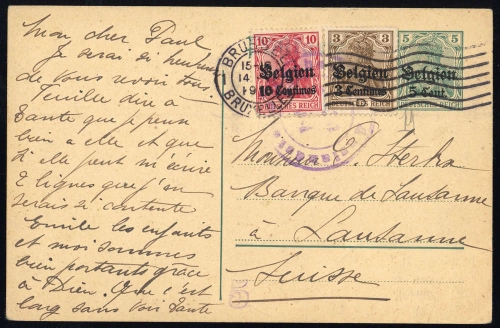 Mon cher Paul
Je serai si heureux
de vous revoir tous.
Veuille dire à
Tante que je pense
bien a elle et que
si elle peut m'écrire
2 lignes que j'en
serais si contente
Emile les enfants
et moi sommes
bien portants grâce
à Dieu. Que c'est
long sans voir Tante
BRUX
15-
14
19
BRU
10 10
Belgien
10 Centimes
DEUTSCHES REICH
3 3
Belgien
3 Centimes
5 5
Belgien
5 Cent.
T
Monsieur P. Sterky
Banque de Lausanne
à Lausanne
Suisse